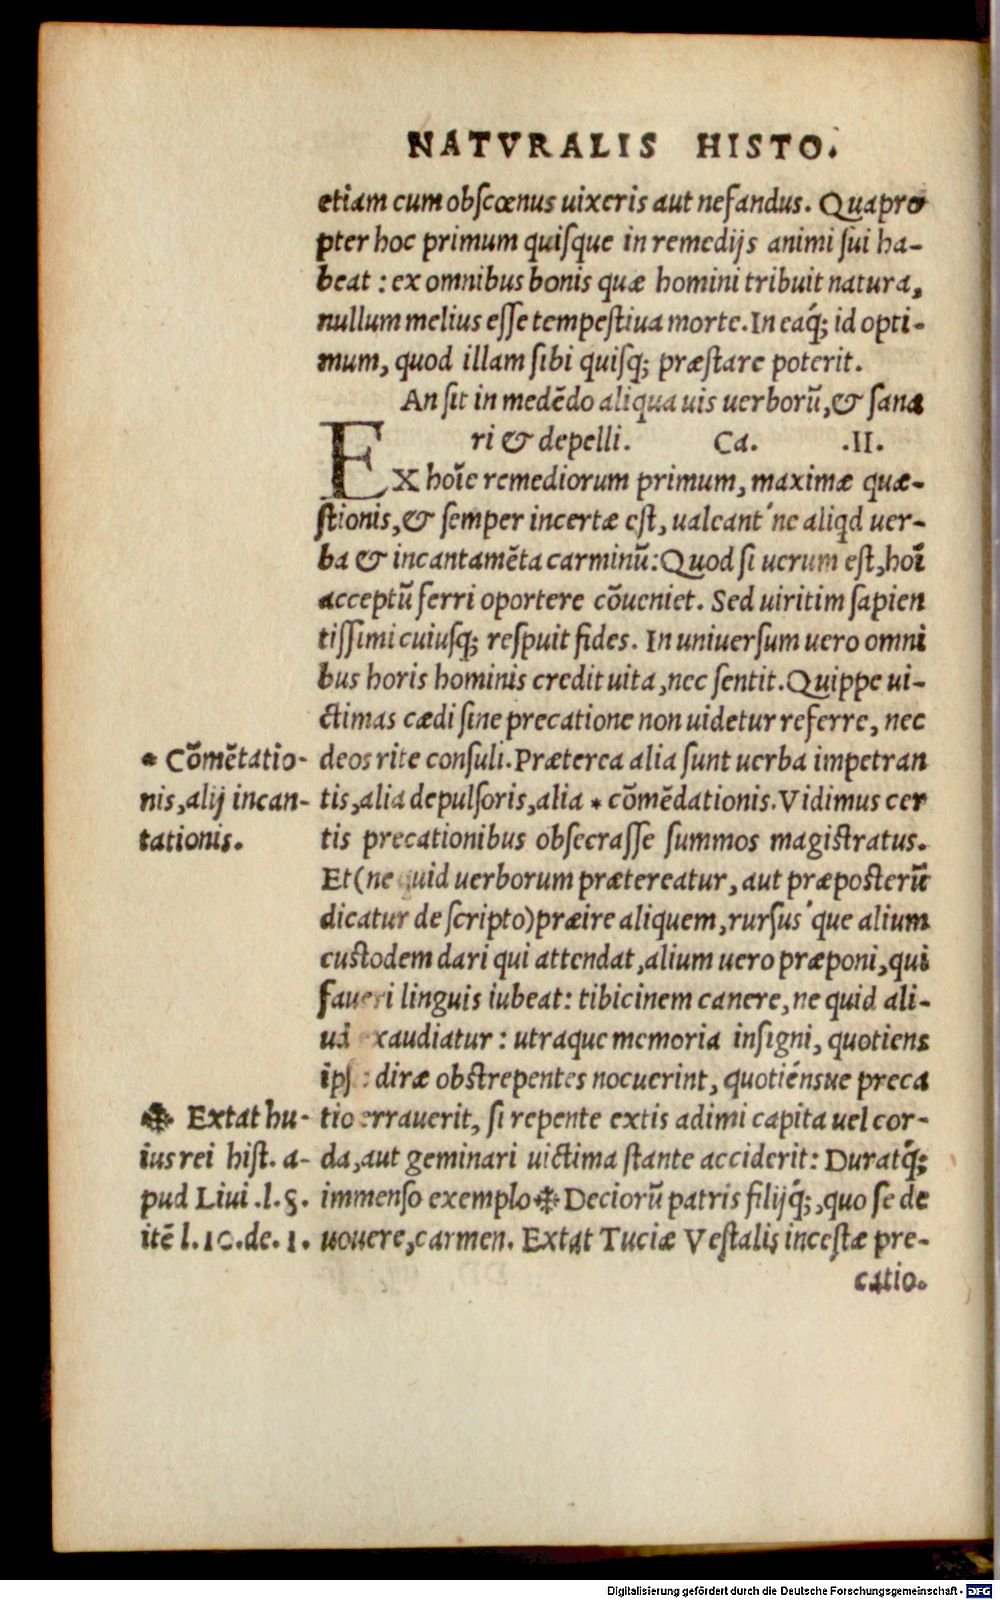 NATVRALIS HISTO.
etiam cum obscœnus uixeris aut nefandus. Quapro
pter hoc primum quisque in remedijs animi sui ha-
beat : ex omnibus bonis quæ homini tribuit natura,
nullum melius esse tempestiua morte. In eaq́; id opti-
mum, quod illam sibi quisq; præstare poterit.
An sit in medẽdo aliqua uis uerborũ, & sana
ri & depelli. Ca. .II.
EX hoĩe remediorum primum, maximæ quæ-
stionis, & semper incertæ est, ualeant'ne aliqd uer-
ba & incantamẽta carminũ: Quod si uerum est, hoĩ
acceptũ ferri oportere cõueniet. Sed uiritim sapien
tissimi cuiusq; respuit fides. In uniuersum uero omni
bus horis hominis credit uita, nec sentit. Quippe ui-
ctimas cædi sine precatione non uidetur referre, nec
deos rite consuli. Præterea alia sunt uerba impetran
tis, alia depulsoris, alia * cõmẽdationis. Vidimus cer
tis precationibus obsecrasse summos magistratus.
Et (ne quid uerborum prætereatur, aut præposterũ
dicatur de scripto) præire aliquem, rursus'que alium
custodem dari qui attendat, alium uero præponi, qui
faueri linguis iubeat: tibicinem canere, ne quid ali-
ud exaudiatur : utraque memoria insigni, quotiens
ipsæ diræ obstrepentes nocuerint, quotiénsue preca
tio errauerit, si repente extis adimi capita uel cor-
da, aut geminari uictima stante acciderit: Duratq́;
immenso exemplo ❉ Deciorũ patris filijq́;, quo se de
uouere, carmen. Extat Tuciæ Vestalis incestæ pre-
catio.
* Cõmẽtatio-
nis, alij incan-
tationis.
❉ Extat hu-
ius rei hist. a-
pud Liui .l. 8.
itẽ l. 10. de. 1.
Digitalisierung gefördert durch die Deutsche Forschungsgemeinschaft - DFG